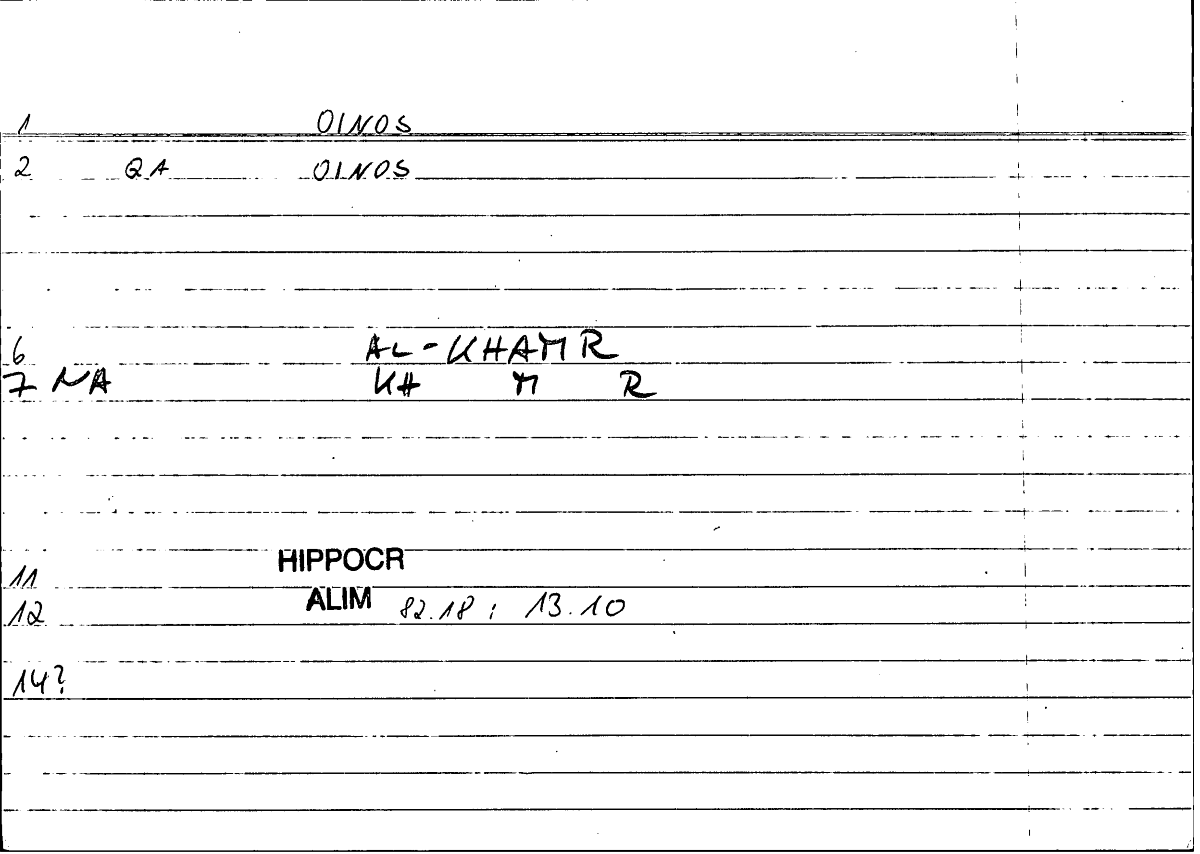 1 OINOS
2 QA OINOS
6 AL-KHAMR
7 NA KH M R
HIPPOCR
11
12 ALIM 82.18; 13.10
14?